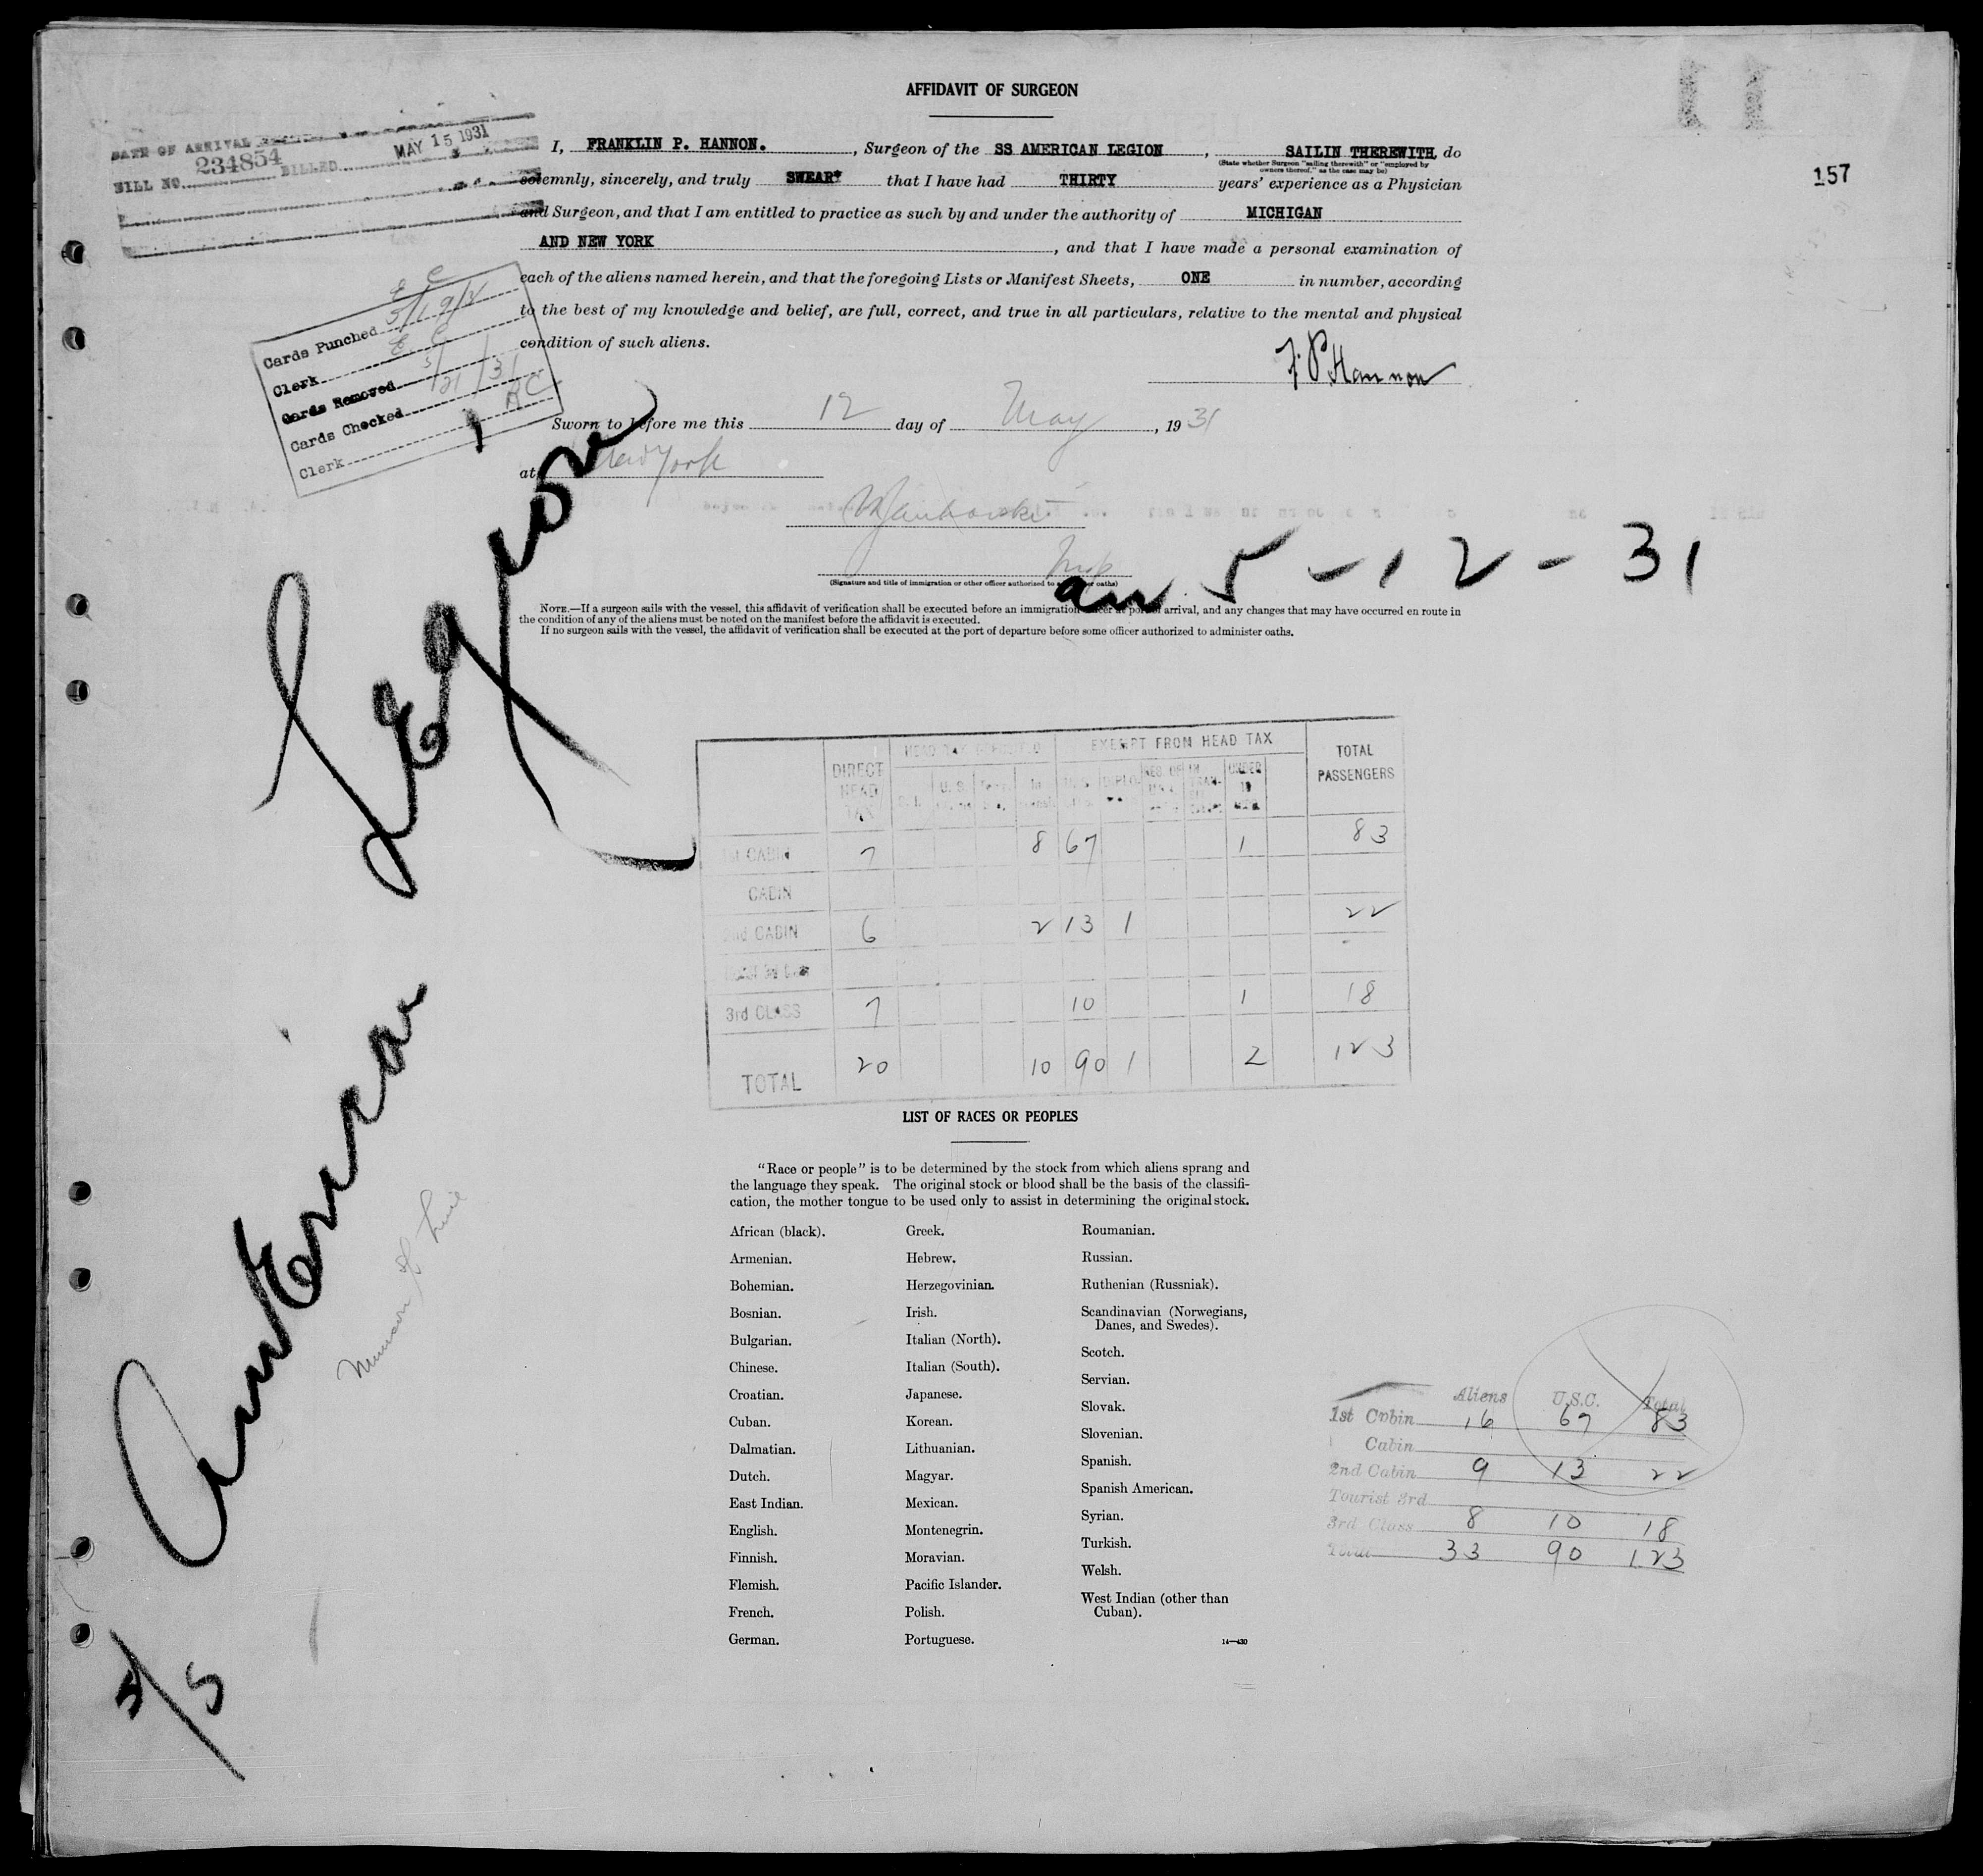 AFFIDAVIT OF SURGEON
11
DATE OF ARRIVAL
BILL NO. 234854 BILLED MAY 15 1931
157
I, FRANKLIN P. HANNON. , Surgeon of the SS AMERICAN LEGION , SAILIN THEREWITH, do
(State whether Surgeon "sailing therewith" or "employed by
owners thereof," as the case may be)
solemnly, sincerely, and truly SWEAR* that I have had THIRTY years' experience as a Physician
and Surgeon, and that I am entitled to practice as such by and under the authority of MICHIGAN
AND NEW YORK , and that I have made a personal examination of
each of the aliens named herein, and that the foregoing Lists or Manifest Sheets, ONE in number, according
to the best of my knowledge and belief, are full, correct, and true in all particulars, relative to the mental and physical
condition of such aliens.
F. P. Hannon
Cards Punched
Clerk
Cards Removed 5/21/31
Cards Checked
Clerk
Sworn to before me this 12 day of May , 19 31
at New York
(Signature and title of immigration or other officer authorized to administer oaths)
5-12-31
NOTE.—If a surgeon sails with the vessel, this affidavit of verification shall be executed before an immigration officer at port of arrival, and any changes that may have occurred en route in
the condition of any of the aliens must be noted on the manifest before the affidavit is executed.
If no surgeon sails with the vessel, the affidavit of verification shall be executed at the port of departure before some officer authorized to administer oaths.
S/S American Legion
Munson S Line
DIRECT HEAD TAX EXEMPT FROM HEAD TAX TOTAL PASSENGERS
UNDER 16
1st CABIN 7 8 67 1 83
CABIN
2nd CABIN 6 2 13 1 22
3rd CLASS 7 10 1 18
TOTAL 20 10 90 1 2 123
LIST OF RACES OR PEOPLES
"Race or people" is to be determined by the stock from which aliens sprang and
the language they speak. The original stock or blood shall be the basis of the classifi-
cation, the mother tongue to be used only to assist in determining the original stock.
African (black).
Armenian.
Bohemian.
Bosnian.
Bulgarian.
Chinese.
Croatian.
Cuban.
Dalmatian.
Dutch.
East Indian.
English.
Finnish.
Flemish.
French.
German.
Greek.
Hebrew.
Herzegovinian.
Irish.
Italian (North).
Italian (South).
Japanese.
Korean.
Lithuanian.
Magyar.
Mexican.
Montenegrin.
Moravian.
Pacific Islander.
Polish.
Portuguese.
Roumanian.
Russian.
Ruthenian (Russniak).
Scandinavian (Norwegians,
Danes, and Swedes).
Scotch.
Servian.
Slovak.
Slovenian.
Spanish.
Spanish American.
Syrian.
Turkish.
Welsh.
West Indian (other than
Cuban).
14—430
Aliens U.S.C. Total
1st Cabin 16 67 83
Cabin
2nd Cabin 9 13 22
Tourist 3rd
3rd Class 8 10 18
Total 33 90 123